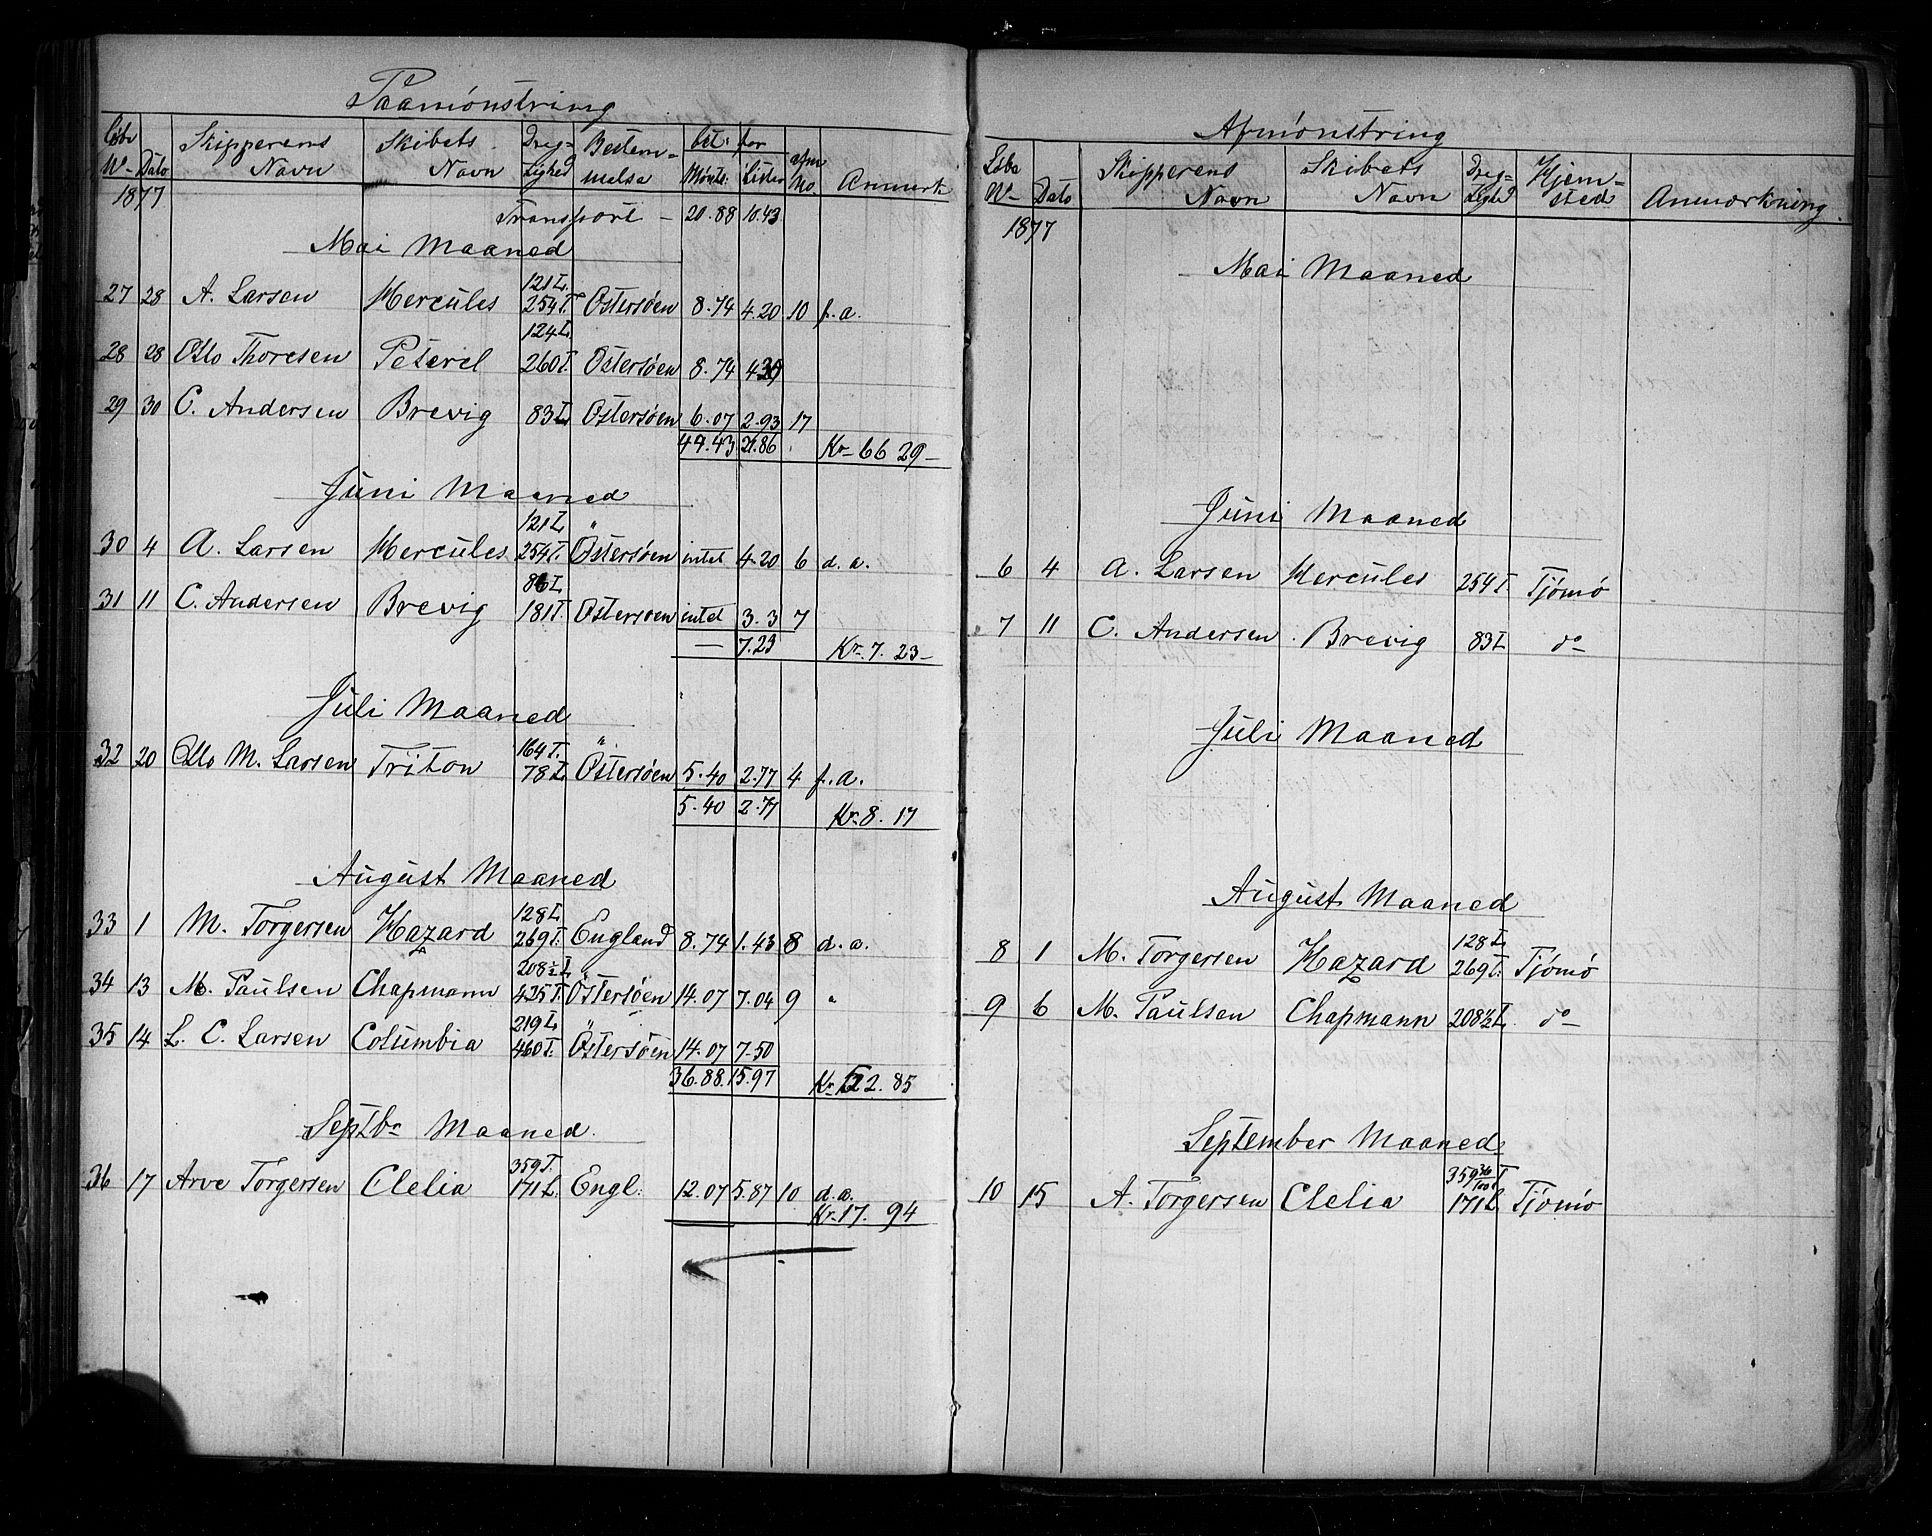 Paamönstring
Löbe Skipperens Skibets Dræg- Bestem- bet: for afm
No Dato Navn Navn tighed melse Mönts: Lister No Anmerk
1877
Transport - 20.88 10.43
Mai Maaned
121 L.
27 28 A. Larsen Hercules 254 T. Östersöen 8.74 4.20 10 f. a.
124 L.
28 28 Otto Thoresen Peterel 260 T. Östersöen 8.74
29 30 C. Andersen Brevig 83 L Östersöen 6.07 2.93 17
44.43 21.86 Kr- 66 29-
Juni Maaned
121 L
30 4 A. Larsen Hercules 254 T. Östersöen intet 4.20 6 d. a.
31 11 C. Andersen Brevig 181 T. Östersöen intet 3.3 7
— 7.23 Kr. 7. 23-
Juli Maaned
164 T.
32 20 Otto M. Larsen Triton 78 L. Östersöen 5.40 2.77 4 f. a.
5.40 2.77 Kr. 8. 17
August Maaned
128 L.
33 1 M. Torgersen Hazard 269 T. England 8.74 1.43 8 d. a.
208½ L
34 13 M. Paulsen Chapmann 425 T. Östersöen 14.07 7.04 9 "
219 L
35 14 L. C. Larsen Columbia 460 T. Östersöen 14.07 7.50
36.88 15.97 Kr 52.85
Septbr Maaned.
359 T.
36 17 Arve Torgersen Clelia 171 L. Engl: 12.07 5.87 10 d. a.
Kr. 17. 94
Afmönstring
Löbe Skipperens Skibets Dræg- Hjem-
No Dato Navn Navn tighed sted Anmærkning
1877
Mai Maaned
Juni Maaned
6 4 A. Larsen Hercules 254 T. Tjömö
7 11 C. Andersen Brevig 83 L do
Juli Maaned
August Maaned
128 L
8 1 M. Torgersen Hazard 269 T. Tjömö
9 6 M. Paulsen Chapmann 208½ L do
September Maaned
359 36/100 T
10 15 A. Torgersen Clelia 171 L Tjömö